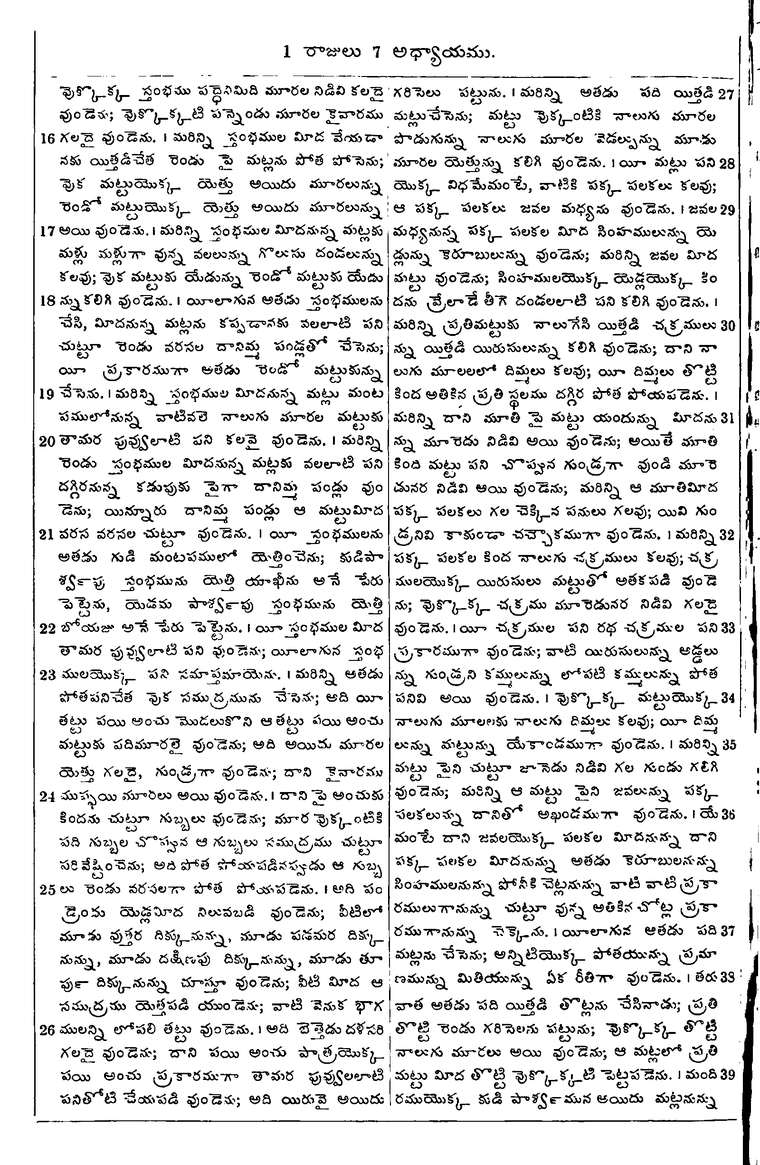 1 రాజులు 7 అధ్యాయము.
వొక్కొక్క స్తంభము పద్ధెనిమిది మూరల నిడివి కలదై
వుండెను; వొక్కొక్కటి పన్నెండు మూరల కైవారము
16 గలదై వుండెను. । మరిన్ని స్తంభముల మీద వేయడా
నకు యిత్తడిచేత రెండు పై మట్లను పోత పోసెను;
వొక మట్టుయొక్క యెత్తు అయిదు మూరలున్ను
రెండో మట్టుయొక్క యెత్తు అయిదు మూరలున్ను
17 అయి వుండెను. । మరిన్ని స్తంభముల మీదనున్న మట్లకు
మళ్లు మళ్లుగా వున్న వలలున్ను గొలుసు దండలున్ను
కలవు; వొక మట్టుకు యేడున్ను రెండో మట్టుకు యేడు
18 న్ను కలిగి వుండెను. । యీలాగున అతడు స్తంభములను
చేసి, మీదనున్న మట్లను కప్పడానకు వలలాటి పని
చుట్టూ రెండు వరసల దానిమ్మ పండ్లతో చేసెను;
యీ ప్రకారముగా అతడు రెండో మట్టుకున్ను
19 చేసెను. । మరిన్ని స్తంభముల మీదనున్న మట్లు మంట
పములోనున్న వాటివలె నాలుగు మూరల మట్టుకు
20 తామర పువ్వులాటి పని కలవై వుండెను. । మరిన్ని
రెండు స్తంభముల మీదనున్న మట్లకు వలలాటి పని
దగ్గిరనున్న కడుపుకు పైగా దానిమ్మ పండ్లు వుం
డెను; యిన్నూరు దానిమ్మ పండ్లు ఆ మట్టుమీద
21 వరస వరసల చుట్టూ వుండెను. । యీ స్తంభములను
అతడు గుడి మంటపములో యెత్తించెను; కుడిపా
ర్శ్వపు స్తంభమును యెత్తి యాఖీను అనే పేరు
పెట్టెను, యెడమ పార్శ్వపు స్తంభమును యెత్తి
22 బోయజు అనే పేరు పెట్టెను. । యీ స్తంభముల మీద
తామర పువ్వులాటి పని వుండెను; యీలాగున స్తంభ
23 ములయొక్క పని సమాప్తమాయెను. । మరిన్ని అతడు
పోతపనిచేత వొక సముద్రమును చేసెను; అది యీ
తట్టు పయి అంచు మొదలుకొని ఆతట్టు పయి అంచు
మట్టుకు పదిమూరలై వుండెను; అది అయిదు మూరల
యెత్తు గలదై, గుండ్రగా వుండెను; దాని కైవారము
24 ముప్పయి మూరలు అయి వుండెను. । దాని పై అంచుకు
కిందను చుట్టూ గుబ్బలు వుండెను; మూర వొక్కంటికి
పది గుబ్బల చొప్పున ఆ గుబ్బలు సముద్రము చుట్టూ
పరివేష్టించెను; అది పోత పోయపడినప్పుడు ఆ గుబ్బ
25 లు రెండు వరసలగా పోత పోయపడెను. । అది పం
డ్రెండు యెడ్లమీద నిలువబడి వుండెను; వీటిలో
మూడు వుత్తర దిక్కునున్ను, మూడు పడమర దిక్కు
నున్ను, మూడు దక్షిణపు దిక్కునున్ను, మూడు తూ
ర్పు దిక్కునున్ను చూస్తూ వుండెను; వీటి మీద ఆ
సముద్రము యెత్తపడి యుండెను; వాటి వెనుక భాగ
26 ములన్ని లోపలి తట్టు వుండెను. । అది బెత్తెడు దళసరి
గలదై వుండెను; దాని పయి అంచు పాత్రయొక్క
పయి అంచు ప్రకారముగా తామర పువ్వులలాటి
పనితోటి చేయపడి వుండెను; అది యిరువై అయిదు
గరిసెలు పట్టును. । మరిన్ని అతడు పది యిత్తడి 27
మట్లుచేసెను; మట్టు వొక్కంటికి నాలుగు మూరల
పొడుగున్ను నాలుగు మూరల వెడల్పున్ను మూడు
మూరల యెత్తున్ను కలిగి వుండెను. । యీ మట్లు పని 28
యొక్క విధమేమంటే, వాటికి పక్క పలకలు కలవు;
ఆ పక్క పలకలు జవల మధ్యను వుండెను. । జవల 29
మధ్యనున్న పక్క పలకల మీద సింహములున్ను యె
డ్లున్ను కెరూబులున్ను వుండెను; మరిన్ని జవల మీద
మట్టు వుండెను; సింహములయొక్క యెడ్లయొక్క కిం
దను వ్రేలాడే తీగె దండలలాటి పని కలిగి వుండెను. ।
మరిన్ని ప్రతిమట్టుకు నాలుగేసి యిత్తడి చక్రములు 30
న్ను యిత్తడి యిరుసులున్ను కలిగి వుండెను; దాని నా
లుగు మూలలలో దిమ్మలు కలవు; యీ దిమ్మలు తొట్టి
కింద అతికిన ప్రతి స్థలము దగ్గిర పోత పోయపడెను. ।
మరిన్ని దాని మూతి పై మట్టు యందున్ను మీదను 31
న్ను మూరెడు నిడివి అయి వుండెను; అయితే మూతి
కింది మట్టు పని చొప్పున గుండ్రగా వుండి మూరె
డునర నిడివి అయి వుండెను; మరిన్ని ఆ మూతిమీద
పక్క పలకలు గల చెక్కిన పనులు గలవు; యివి గుం
డ్రనివి కాకుండా చచ్చౌకముగా వుండెను. । మరిన్ని 32
పక్క పలకల కింద నాలుగు చక్రములు కలవు; చక్ర
ములయొక్క యిరుసులు మట్టుతో అతకపడి వుండె
ను; వొక్కొక్క చక్రము మూరెడునర నిడివి గలదై
వుండెను. । యీ చక్రముల పని రథ చక్రముల పని 33
ప్రకారముగా వుండెను; వాటి యిరుసులున్ను అడ్డలు
న్ను గుండ్రని కమ్ములున్ను లోపటి కమ్ములున్ను పోత
పనివి అయి వుండెను. । వొక్కొక్క మట్టుయొక్క 34
నాలుగు మూలలకు నాలుగు దిమ్మలు కలవు; యీ దిమ్మ
లున్ను మట్టున్ను యేకాండముగా వుండెను. । మరిన్ని 35
మట్టు పైని చుట్టూ జానెడు నిడివి గల గుండు గలిగి
వుండెను; మరిన్ని ఆ మట్టు పైని జవలున్ను పక్క
పలకలున్ను దానితో అఖండముగా వుండెను. । యే 36
మంటే దాని జవలయొక్క పలకల మీదనున్ను దాని
పక్క పలకల మీదనున్ను అతడు కెరూబులనున్ను
సింహములనున్ను పోనీకి చెట్లనున్ను వాటి వాటి ప్రకా
రములుగానున్ను చుట్టూ వున్న అతికిన చోట్ల ప్రకా
రముగానున్ను చెక్కెను. । యీలాగున అతడు పది 37
మట్లను చేసెను; అన్నిటియొక్క పోతయున్ను ప్రమా
ణమున్ను మితియున్ను ఏక రీతిగా వుండెను. । తరు 38
వాత అతడు పది యిత్తడి తొట్లను చేసినాడు; ప్రతి
తొట్టి రెండు గరిసెలను పట్టును; వొక్కొక్క తొట్టి
నాలుగు మూరలు అయి వుండెను; ఆ మట్లలో ప్రతి
మట్టు మీద తొట్టి వొక్కొక్కటి పెట్టపడెను. । మంది 39
రముయొక్క కుడి పార్శ్వమున అయిదు మట్లనున్ను